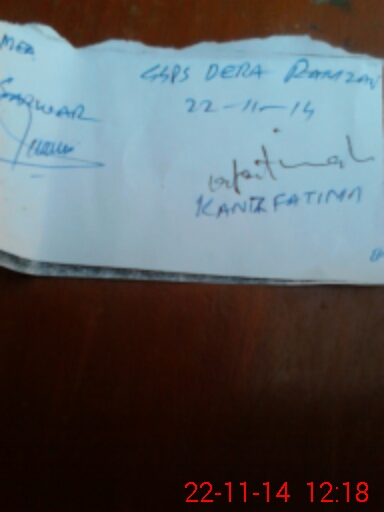 MEA
GGPS DERA RAMZAN
SARWAR
22-11-14
KANIZ FATIMA
22-11-14 12:18